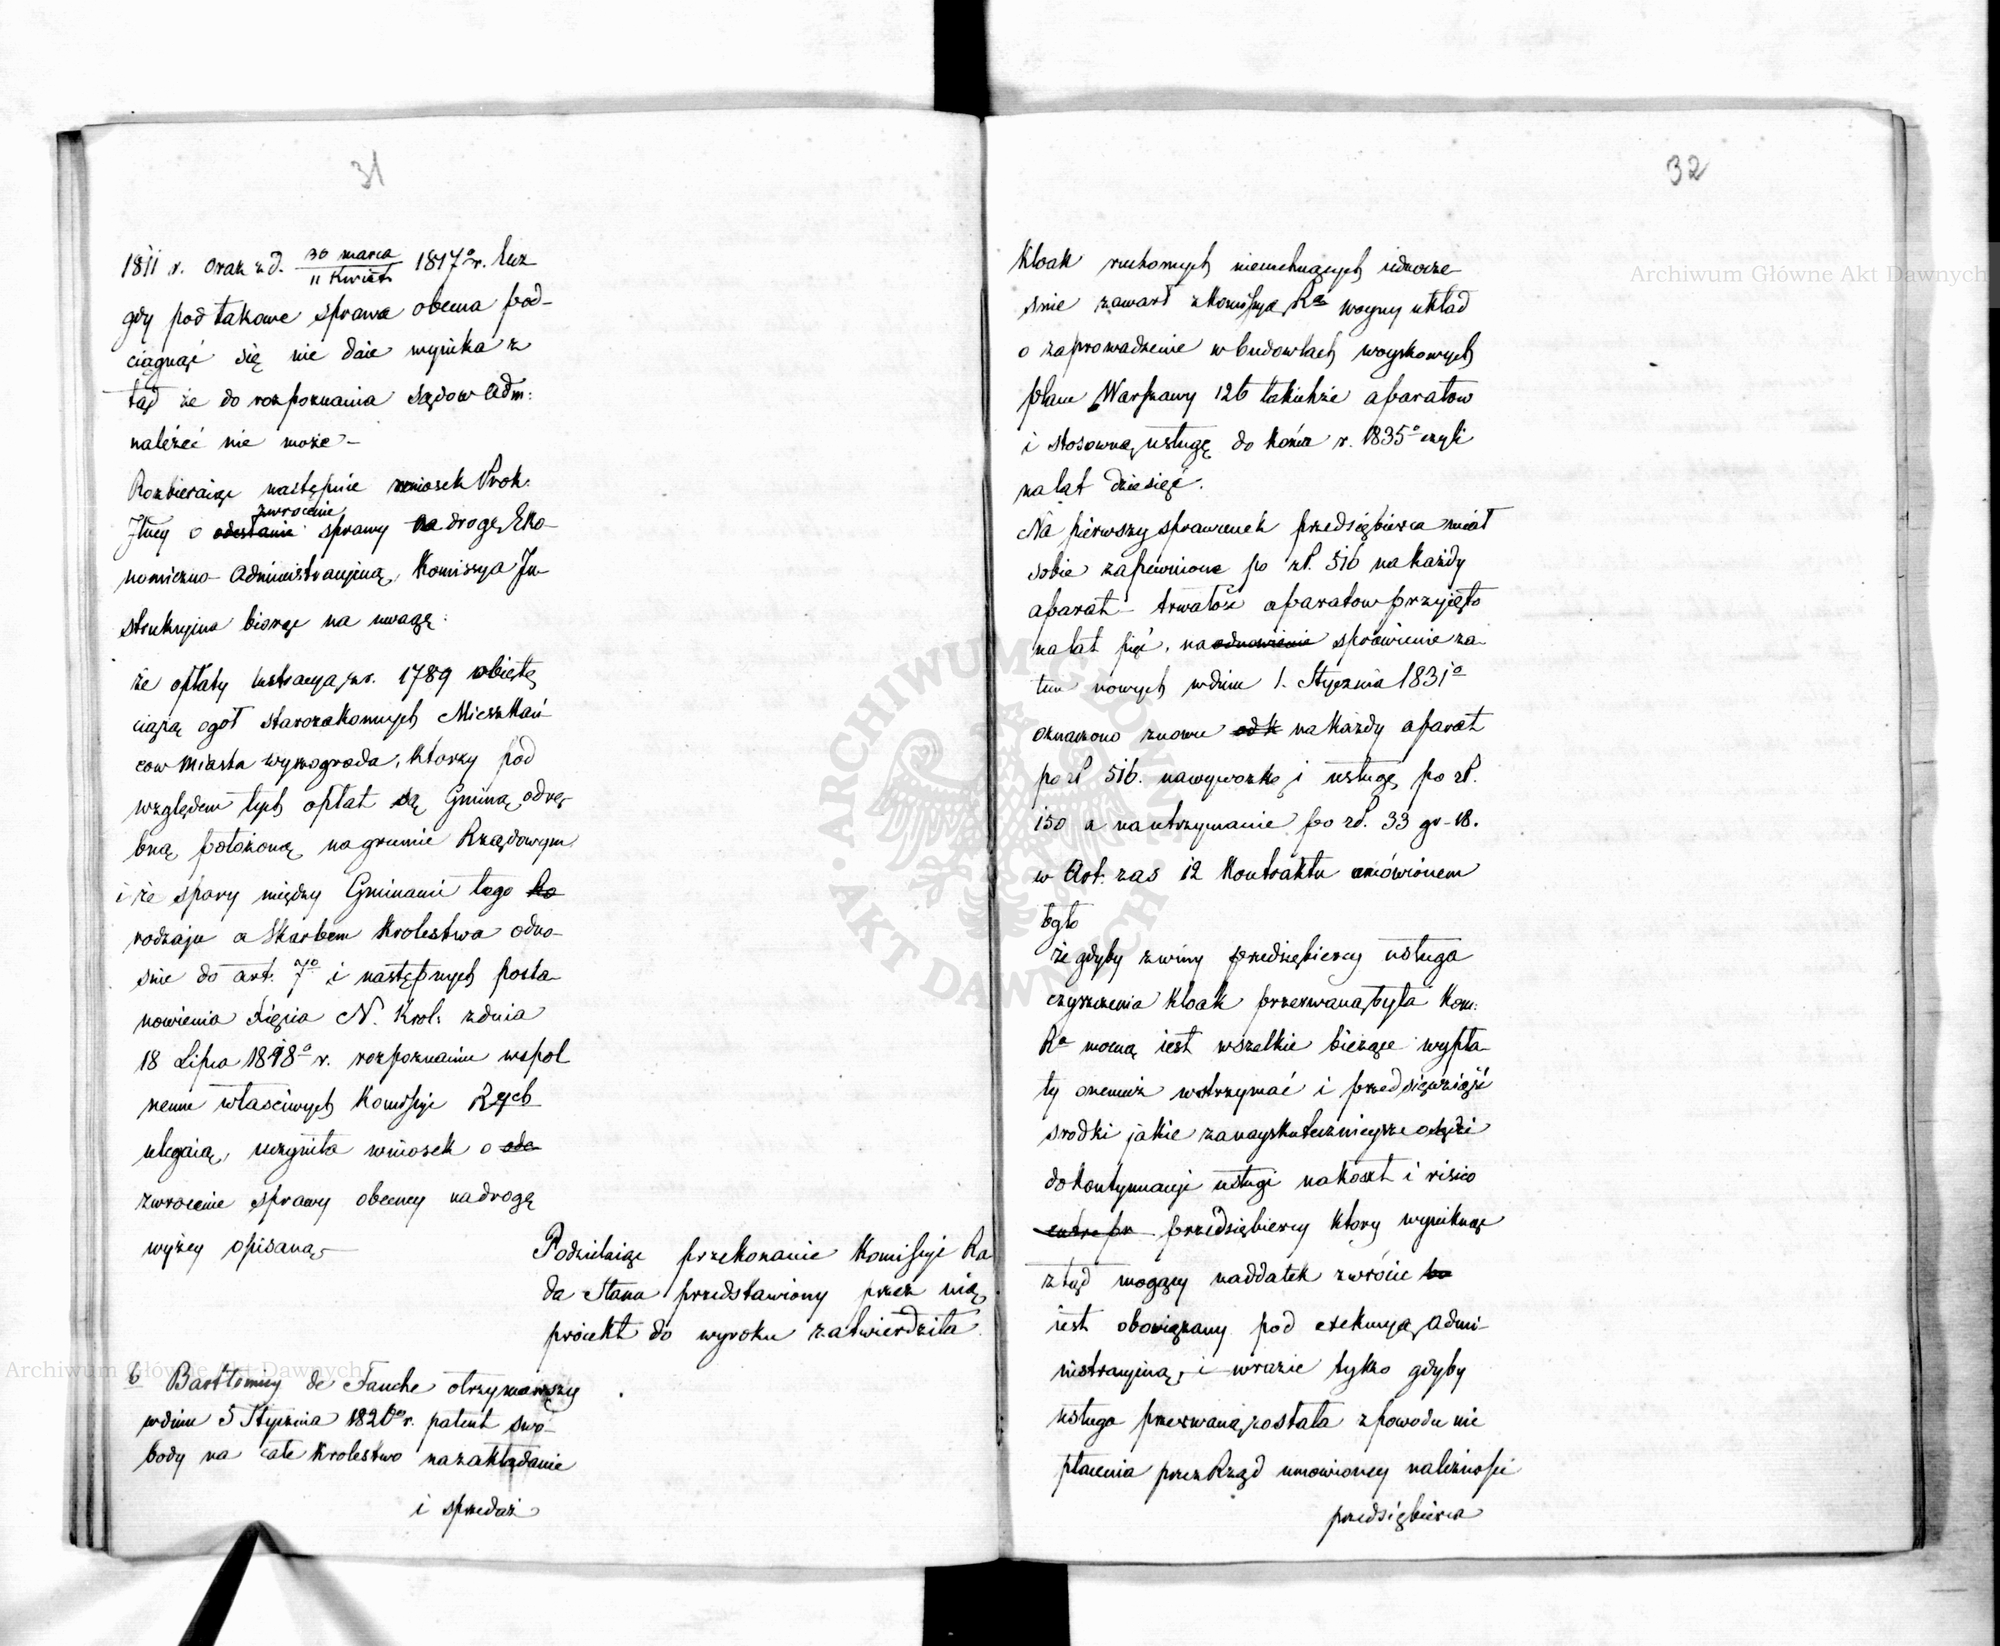 31
1811 r. oraz z d. 30 marca / 11 Kwiet. 1817o r. lecz
gdy pod takowe sprawa obecna pod-
ciągnąć się nie daie wynika z
tąd że do rozpoznania Sądow Adm:
należéć nie może –
Rozbieraiąc następnie wniosek Prok.
Jlney o odesłanie zwrócenie sprawy na drogę Eko-
nomiczno-Administracyiną, Komissya In-
strukcyina biorąc na uwagę:
że opłaty lustracyą z r. 1789 obiętę
ciążą ogół starozakonnych Mieszkań
cow Miasta Wyszogroda, którzy pod
względem tych opłat są Gminą odrę-
bną położoną na gruncie Rządowym
i że spory między Gminami tego ko
rodzaju a Skarbem Krolestwa odno-
snie do art. 7o i następnych posta-
nowienia Xięcia N. Krol: z dnia
18 Lipca 1818o r. rozpoznaniu wspol
nemu właściwych Komissyi Rzych
ulegaią, uczyniła wniosek o ode
zwrocenie sprawy obecney na drogę
wyżey opisaną –
Podzielaiąc przekonanie Komissyi Ra
da Stanu przedstawiony przez nią
proiekt do wyroku zatwierdziła.
6 Bartłomiey de Fauche otrzymawszy
w dniu 5 Stycznia 1826go r. patent swo-
body na całe Krolestwo na zakładanie
i sprzedaż
32
Kloak ruchomych niecuchnących iednocze-
snie zawarł z Komissyą Rą woyny układ
o zaprowadzenie w budowlach woyskowych
placu Warszawy 126 takichże aparatow
i stosowną usługę do końca r. 1835o czyli
na lat dziesięć.
Na pierwszy sprawunek przedsiębierca miał
sobie zapewnione po zł. 516 na każdy
aparat – trwałość aparatow przyięto
na lat pięć, na odnowienie sprawienie za
tem nowych w dniu 1. Stycznia 1831o
oznaczono znowu od k na każdy aparat
po zł 516. na wywozkę i usługę po zł.
150 a na utrzymanie po zł. 33 gr. 18.
w Art. zas 12 Kontraktu omówionem
było
że gdyby z winy przedsiębiercy usługa
czyszczenia kloak przerwaną była Kom:
Ra mocną iest wszelkie bieżące wypła-
ty onemuż wstrzymać i przedsięwziąść
srodki jakie za nayskutecznieysze osądzi
do kontynuacyi usługi na koszt i risico
przedsiębiercy ktory wyniknąć
z tąd mogący naddatek zwrócić bo
iest obowiązany pod exekucyą Admi-
nistracyiną, i w razie tylko gdyby
usługa przerwaną została z powodu nie
płacenia przez Rząd umowioney należności
przedsiębierca
Archiwum Główne Akt Dawnych
Archiwum Główne Akt Dawnych
ARCHIWUM GŁÓWNE AKT DAWNYCH